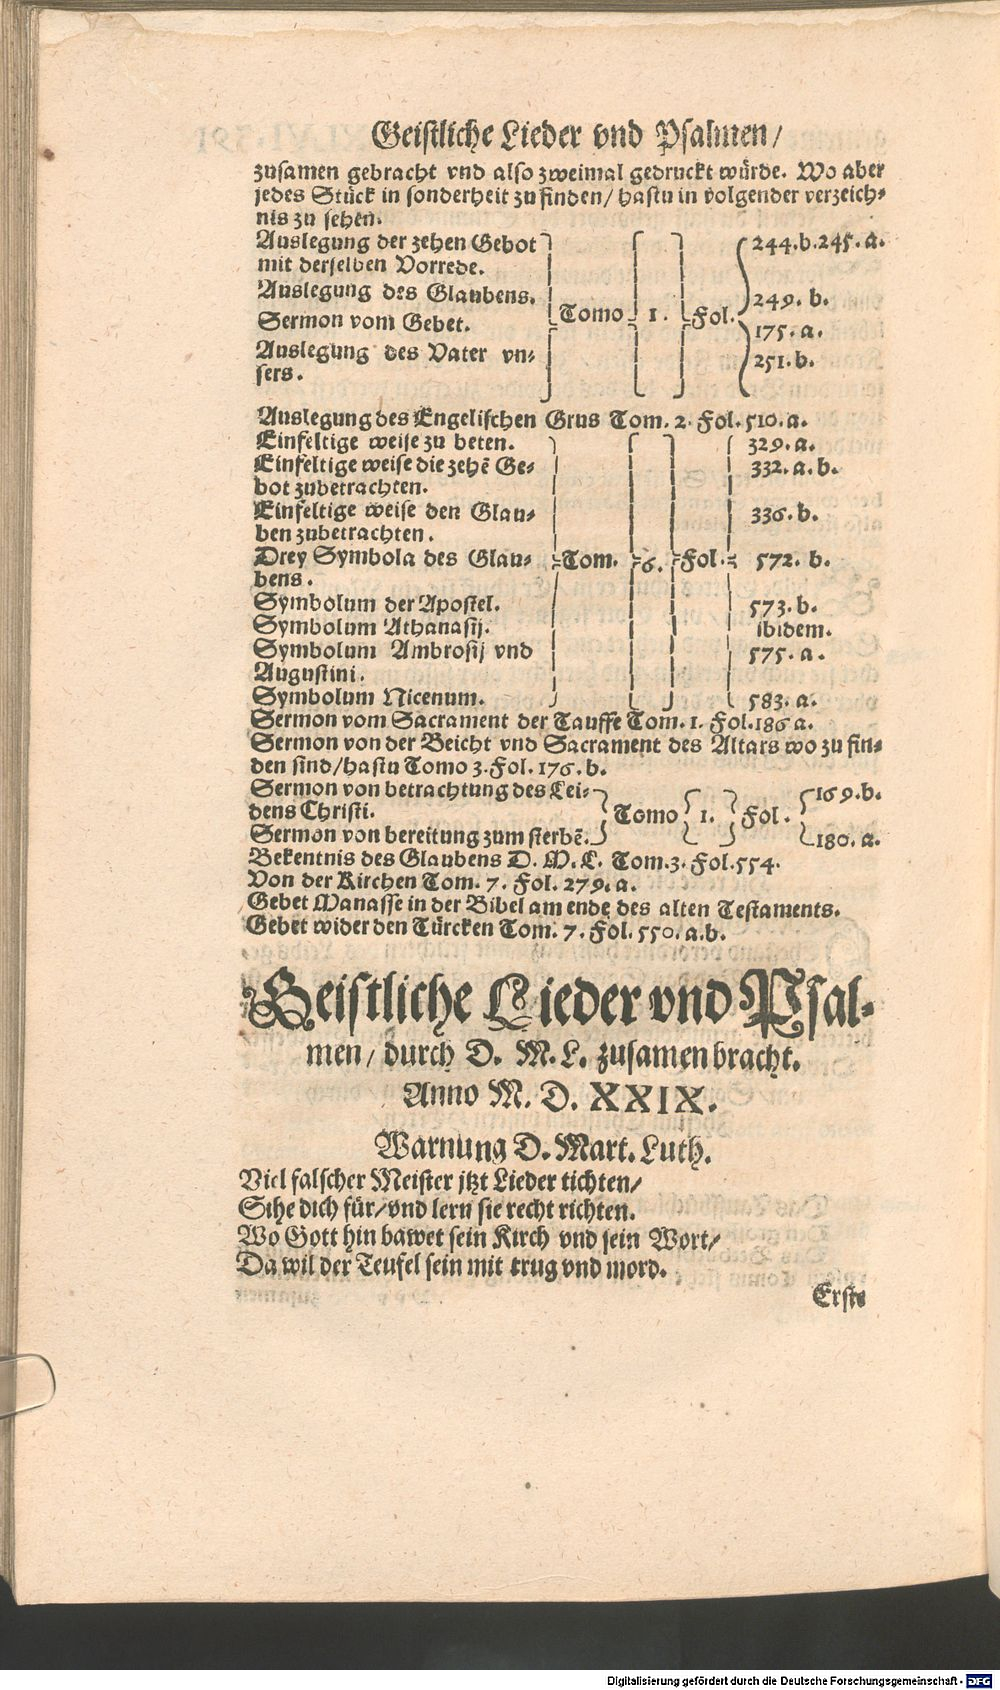 Geistliche Lieder vnd Psalmen/
zusamen gebracht vnd also zweimal gedruckt würde. Wo aber
jedes Stück in sonderheit zu finden/ hastu in volgender verzeich-
nis zu sehen.
Auslegung der zehen Gebot 244.b.245.a.
mit derselben Vorrede.
Auslegung des Glaubens. 249. b.
Tomo 1. Fol.
Sermon vom Gebet. 175. a.
Auslegung des Vater vn- 251. b.
sers.
Auslegung des Engelischen Grus Tom. 2. Fol. 510. a.
Einfeltige weise zu beten. 329. a.
Einfeltige weise die zehē Ge- 332. a. b.
bot zubetrachten.
Einfeltige weise den Glau- 336. b.
ben zubetrachten.
Drey Symbola des Glau- Tom. 6. Fol. 572. b.
bens.
Symbolum der Apostel. 573. b.
Symbolum Athanasij. ibidem.
Symbolum Ambrosij vnd 575. a.
Augustini.
Symbolum Nicenum. 583. a.
Sermon vom Sacrament der Tauffe Tom. 1. Fol. 186 a.
Sermon von der Beicht vnd Sacrament des Altars wo zu fin-
den sind/hastu Tomo 3. Fol. 176. b.
Sermon von betrachtung des Lei- 169. b.
dens Christi. Tomo 1. Fol.
Sermon von bereitung zum sterbē. 180. a.
Bekentnis des Glaubens D. M. L. Tom. 3. Fol. 554.
Von der Kirchen Tom. 7. Fol. 279. a.
Gebet Manasse in der Bibel am ende des alten Testaments.
Gebet wider den Türcken Tom. 7. Fol. 550. a.b.
Geistliche Lieder vnd Psal-
men/ durch D. M. L. zusamen bracht.
Anno M. D. XXIX.
Warnung D. Mart. Luth.
Viel falscher Meister jtzt Lieder tichten/
Sihe dich für/vnd lern sie recht richten.
Wo Gott hin bawet sein Kirch vnd sein Wort/
Da wil der Teufel sein mit trug vnd mord.
Erste
Digitalisierung gefördert durch die Deutsche Forschungsgemeinschaft - DFG